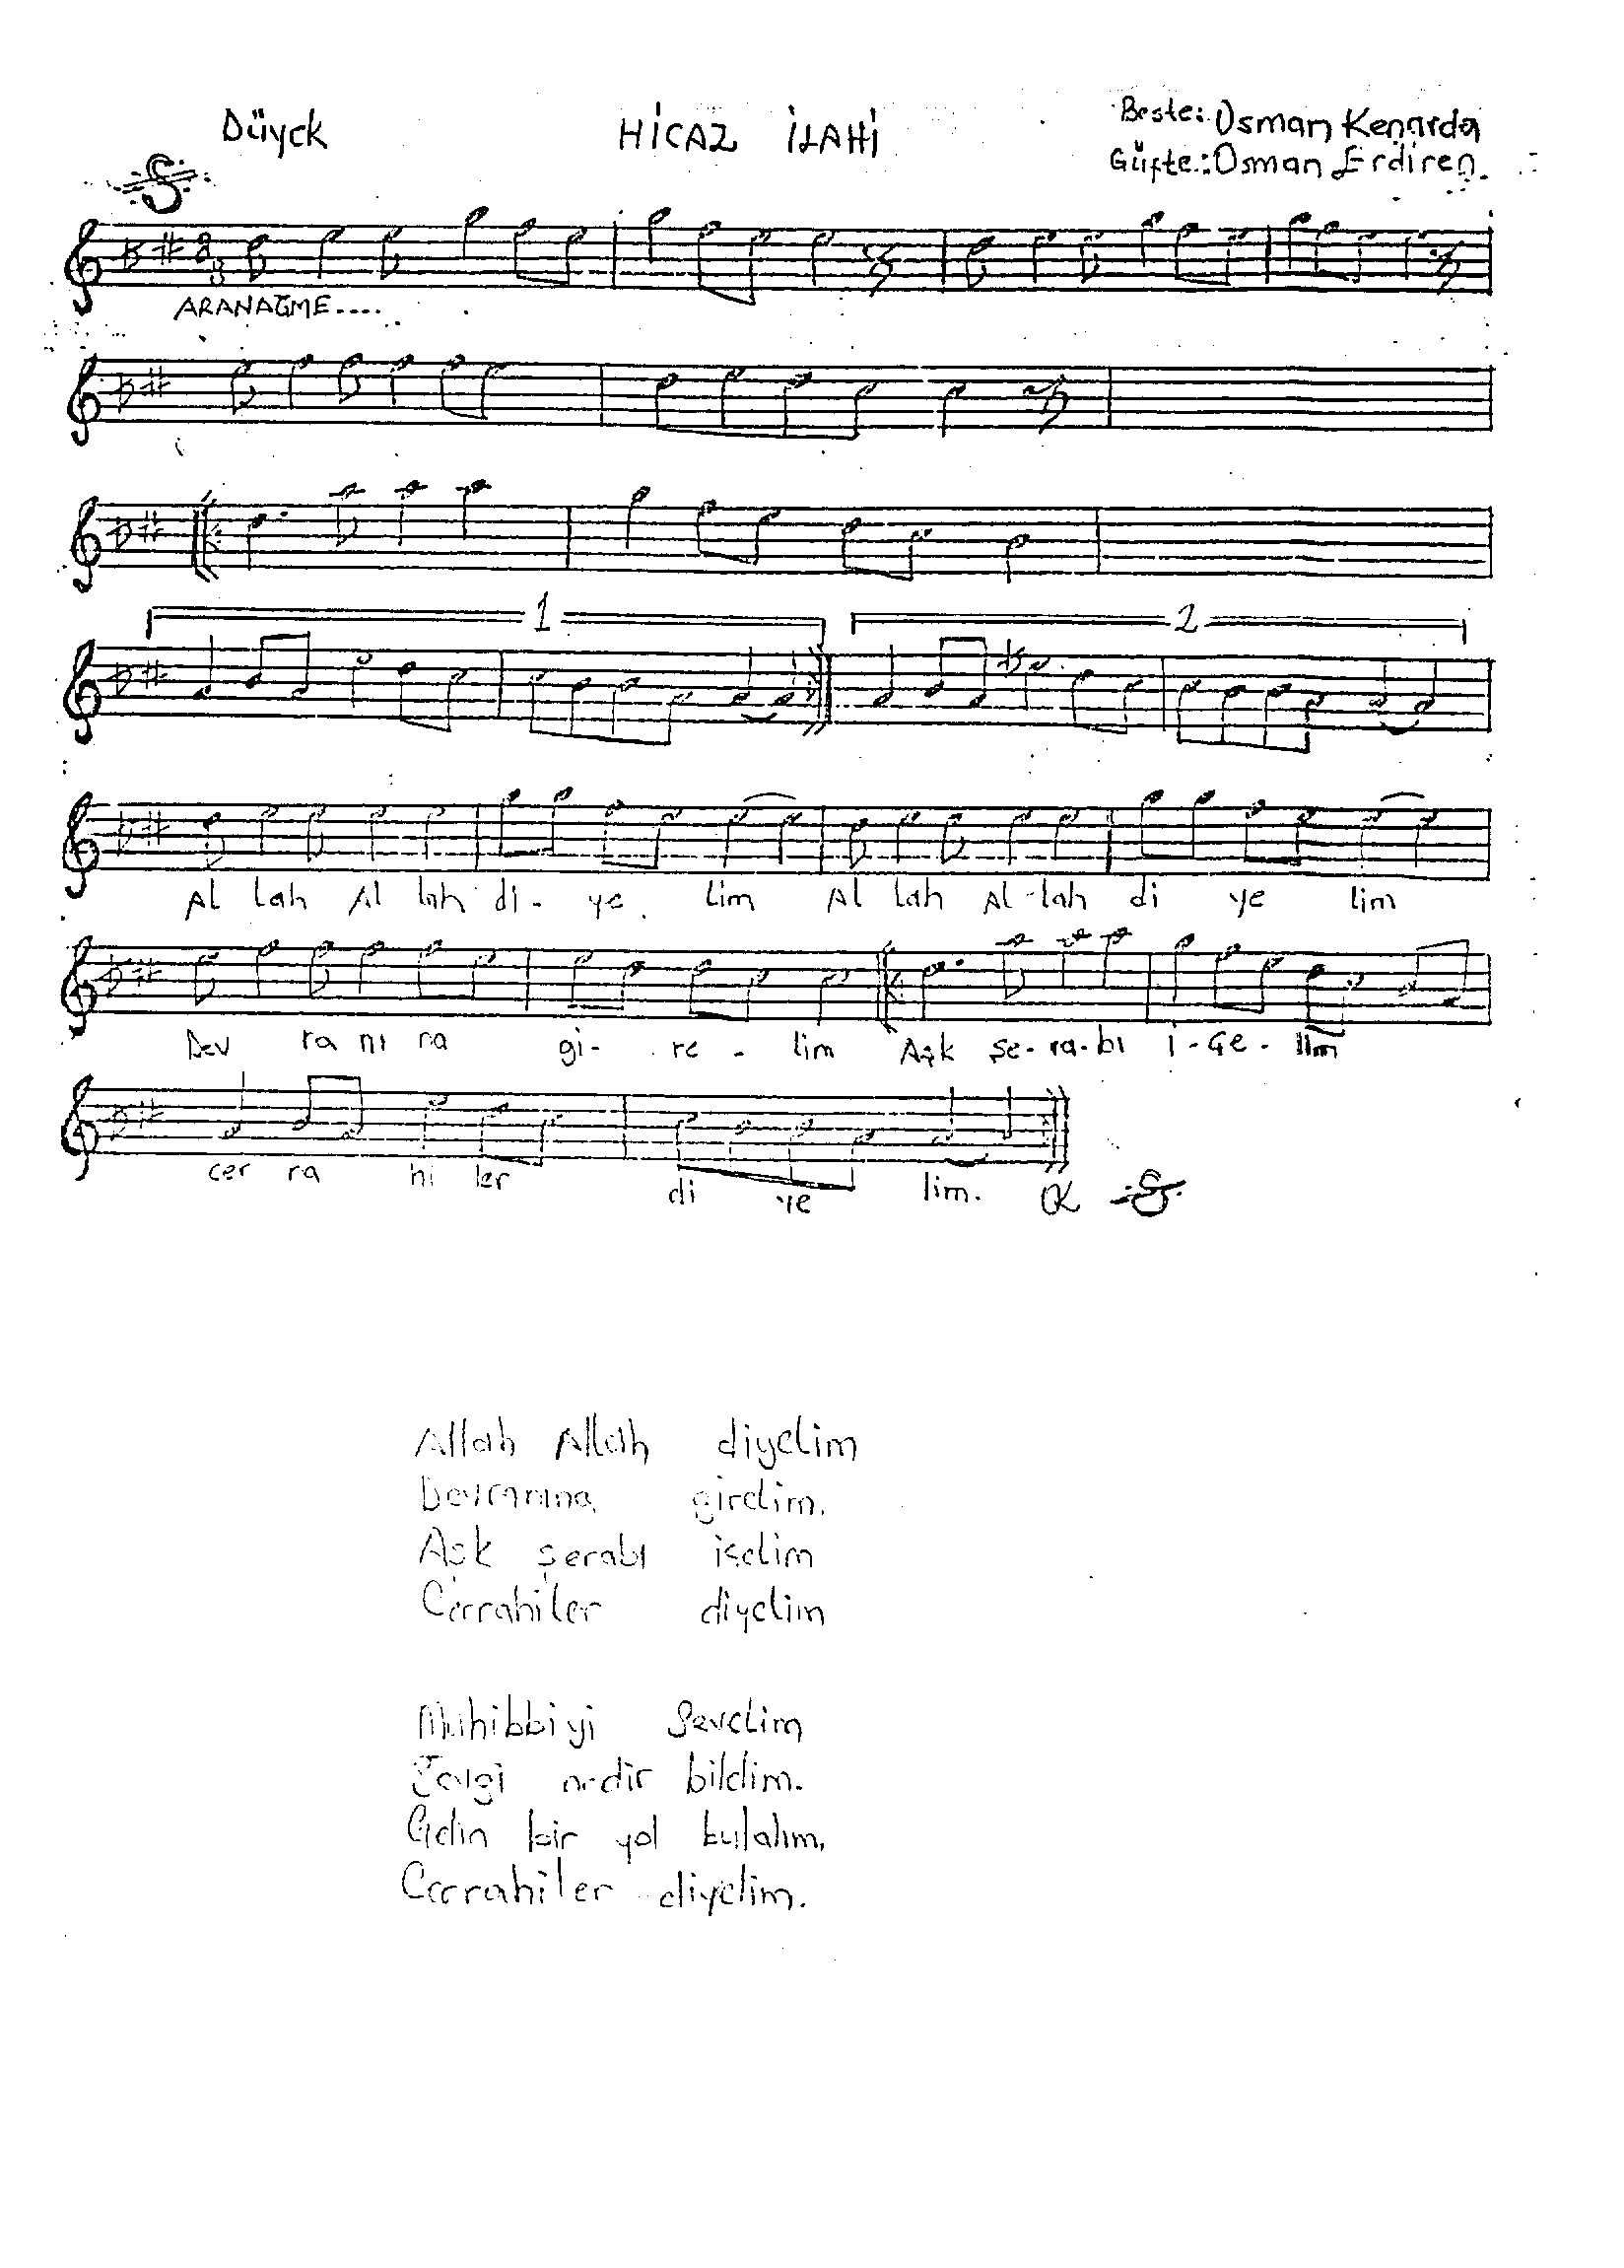 Düyek
HİCAZ İLAHİ
Beste: Osman Kenarda
Güfte: Osman Erdiren
ARANAĞME....
1
2
Al lah Al lah di- ye lim Al lah Al-lah di ye lim
Dev ra nı na gi- re - lim Aşk şe-ra-bı i-Çe-lim
cer ra hi ler di ye lim.
Allah Allah diyelim
Devranına girelim.
Aşk şerabı içelim
Cerrahiler diyelim
Muhibbiyi Sevelim
Sevgi nedir bilelim.
Gelin bir yol bulalım,
Cerrahiler diyelim.